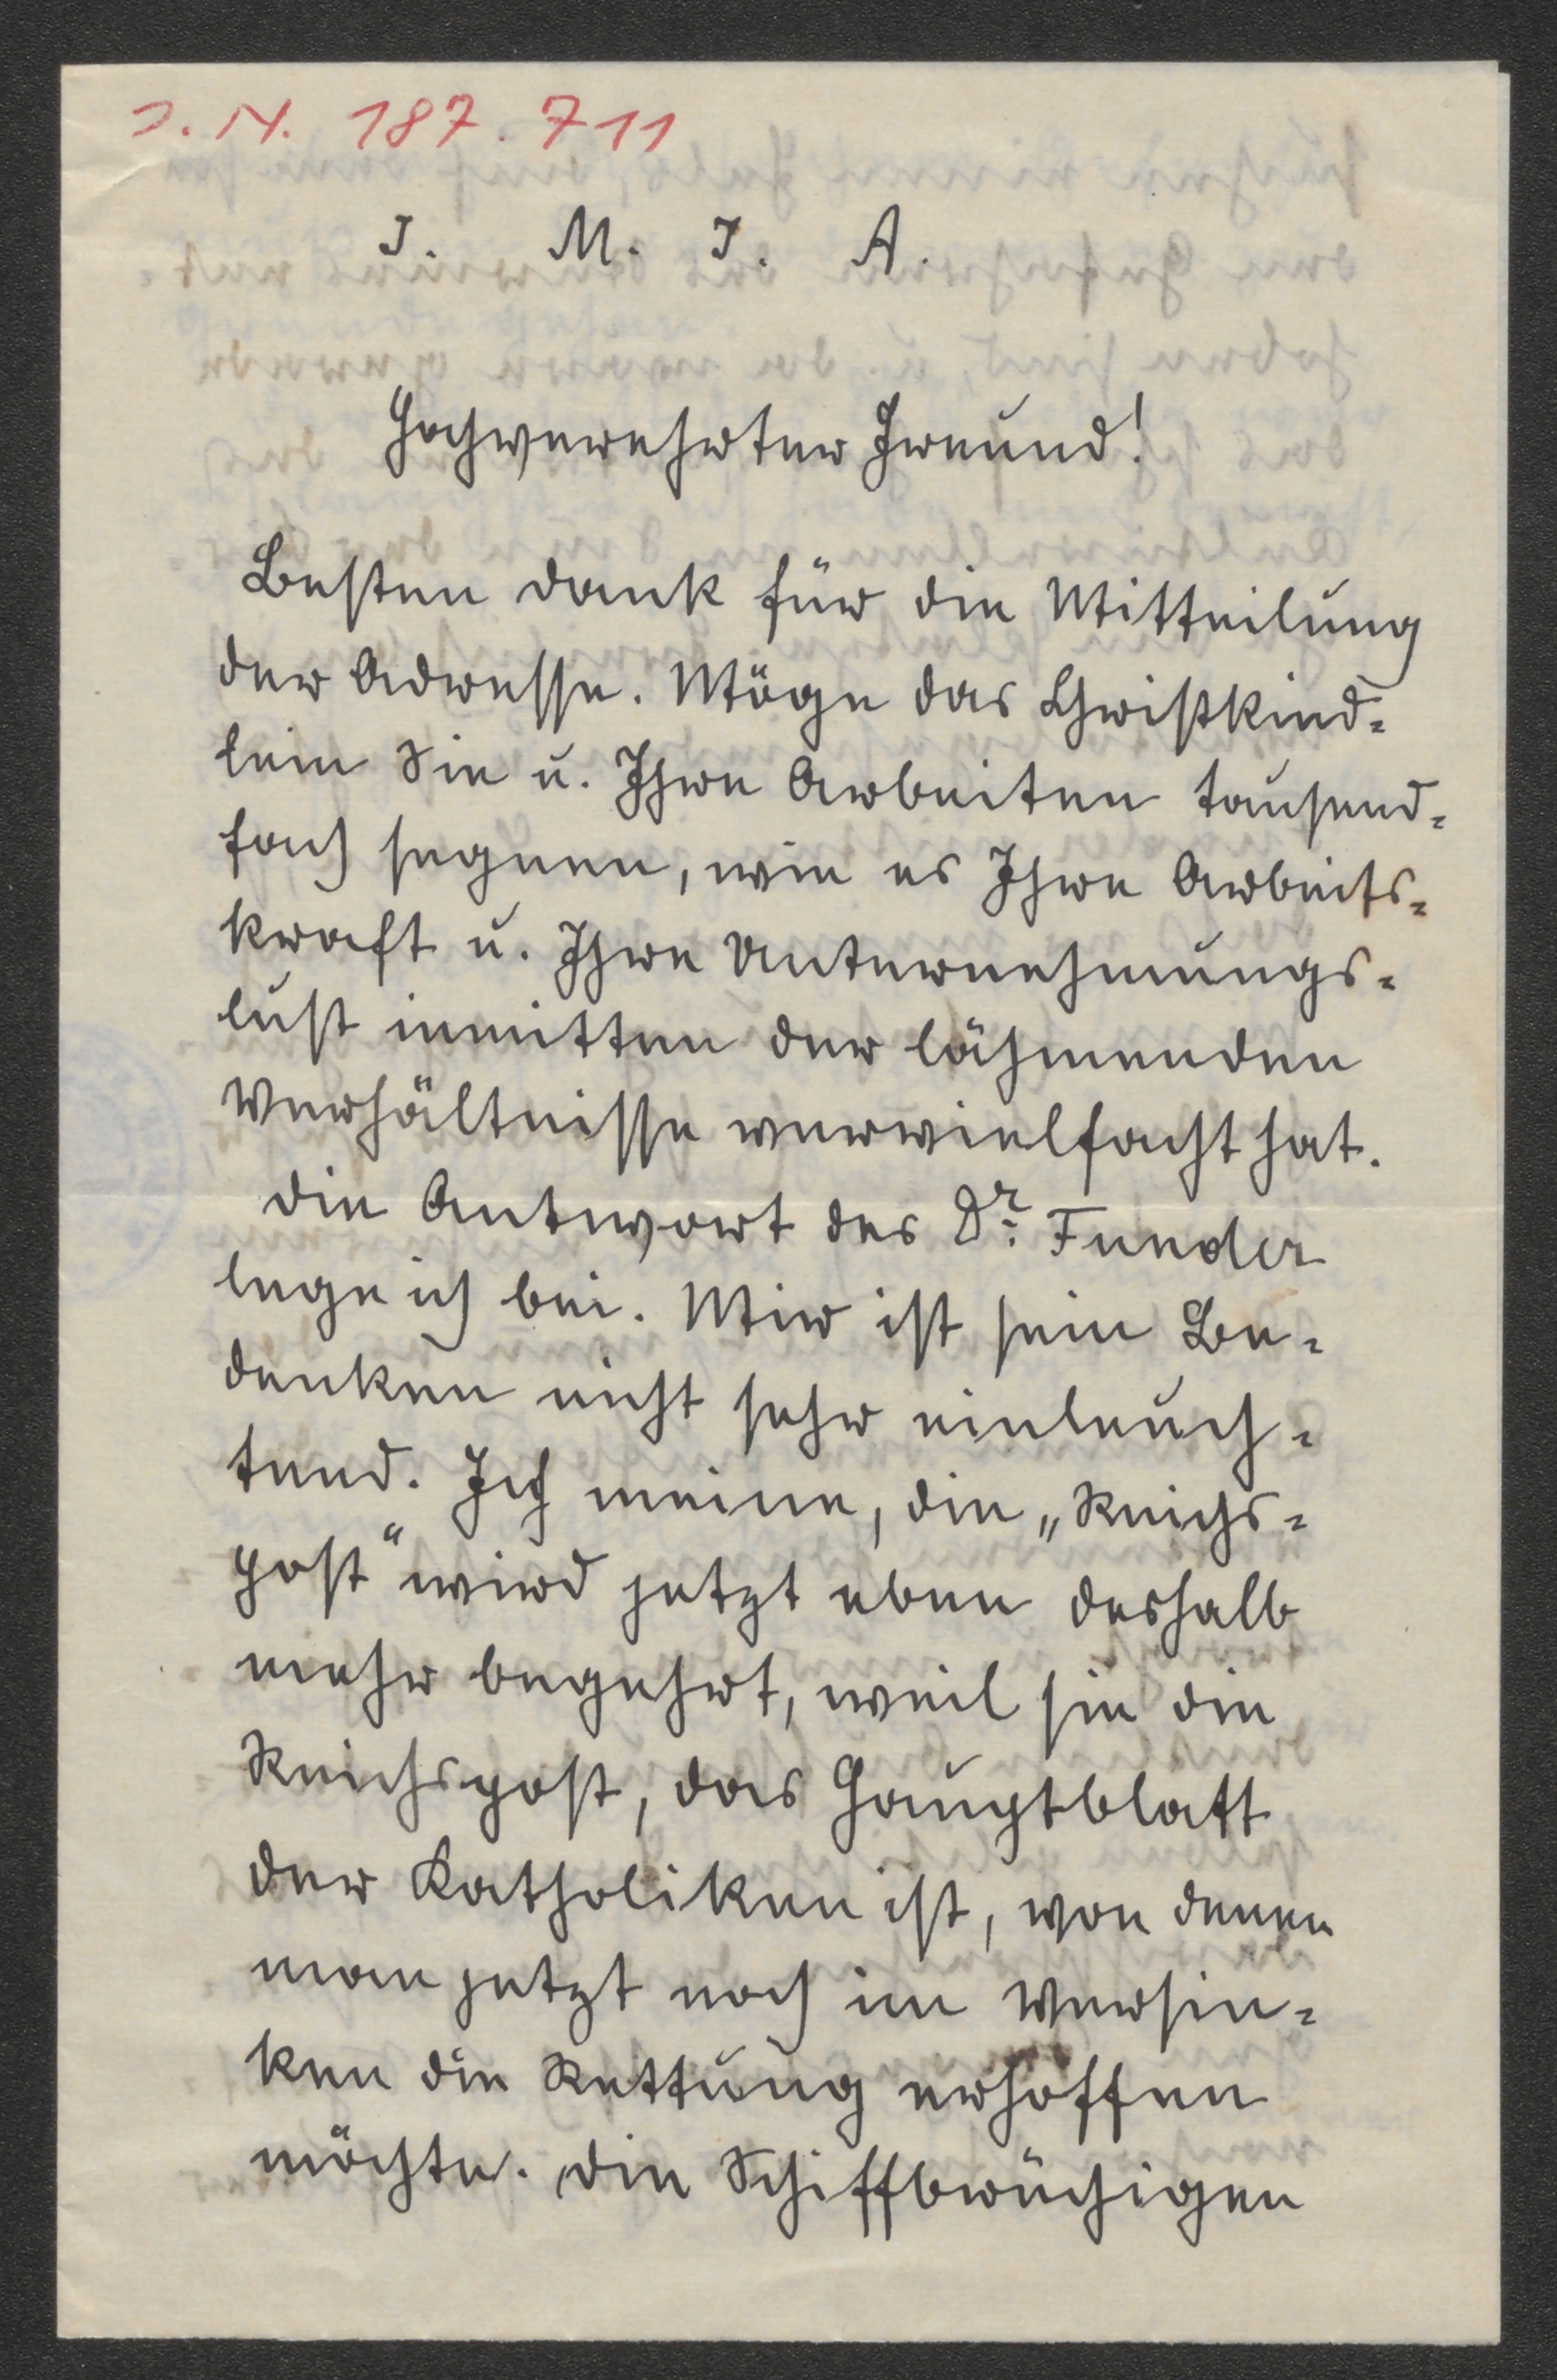 J. N. 187. 711
J. M. J. A.
Hochverehrter Freund!
Besten Dank für die Mitteilung
der Adresse. Möge das Christkind=
lein Sie u. Ihre Arbeiten tausend=
fach segnen, wie es Ihre Arbeits=
kraft u. Ihre Unternehmungs=
lust inmitten der lähmenden
Verhältnisse vervielfacht hat.
Die Antwort des Dr. Funder
lege ich bei. Mir ist sein Be=
denken nicht sehr einleuch=
tend. Ich meine, die „Reichs=
post“ wird jetzt eben deshalb
mehr begehrt, weil sie die
Reichspost, das Hauptblatt
der Katholiken ist, von denen
man jetzt noch im Versin=
ken die Rettung erhoffen
möchte. Die Schiffbrüchigen